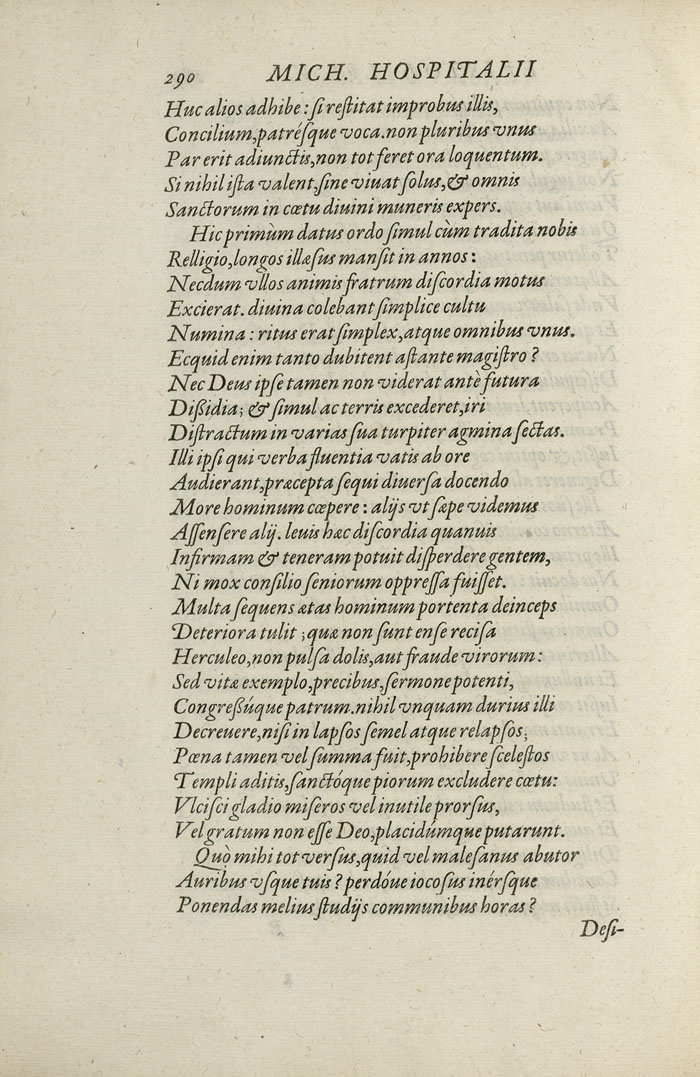 290 MICH. HOSPITALII
Huc alios adhibe: ſi reſtitat improbus illis,
Concilium, patréſque voca. non pluribus vnus
Par erit adiunctis, non tot feret ora loquentum.
Si nihil iſta valent, ſine viuat ſolus, & omnis
Sanctorum in cœtu diuini muneris expers.
Hic primùm datus ordo ſimul cùm tradita nobis
Relligio, longos illæſus manſit in annos:
Necdum vllos animis fratrum diſcordia motus
Excierat. diuina colebant ſimplice cultu
Numina: ritus erat ſimplex, atque omnibus vnus.
Ecquid enim tanto dubitent aſtante magiſtro?
Nec Deus ipſe tamen non viderat antè futura
Dißidia; & ſimul ac terris excederet, iri
Diſtractum in varias ſua turpiter agmina ſectas.
Illi ipſi qui verba fluentia vatis ab ore
Audierant, præcepta ſequi diuerſa docendo
More hominum cœpere: alijs vt ſæpe videmus
Aſſenſere alij. leuis hæc diſcordia quanuis
Infirmam & teneram potuit diſperdere gentem,
Ni mox conſilio ſeniorum oppreſſa fuiſſet.
Multa ſequens ætas hominum portenta deinceps
Deteriora tulit; quæ non ſunt enſe reciſa
Herculeo, non pulſa dolis, aut fraude virorum:
Sed vitæ exemplo, precibus, ſermone potenti,
Congreßúque patrum. nihil vnquam durius illi
Decreuere, niſi in lapſos ſemel atque relapſos;
Pœna tamen vel ſumma fuit, prohibere ſceleſtos
Templi aditis, ſanctóque piorum excludere cœtu:
Vlciſci gladio miſeros vel inutile prorſus,
Vel gratum non eſſe Deo, placidúmque putarunt.
Quò mihi tot verſus, quid vel maleſanus abutor
Auribus vſque tuis? perdóue iocoſus inérſque
Ponendas melius ſtudijs communibus horas?
Deſi-